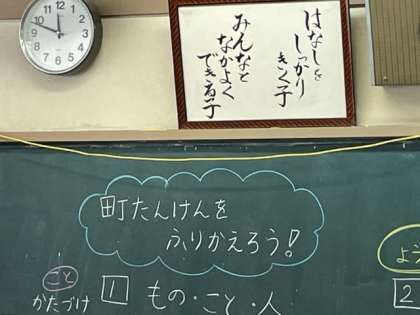 はなしを
しっかり
きく子
みんなと
なかよく
できる子
町たんけんを
ふりかえろう!
こと
かたづけ
1 もの・こと・人
よう
2
12
1
2
3
4
5
6
7
8
9
10
11